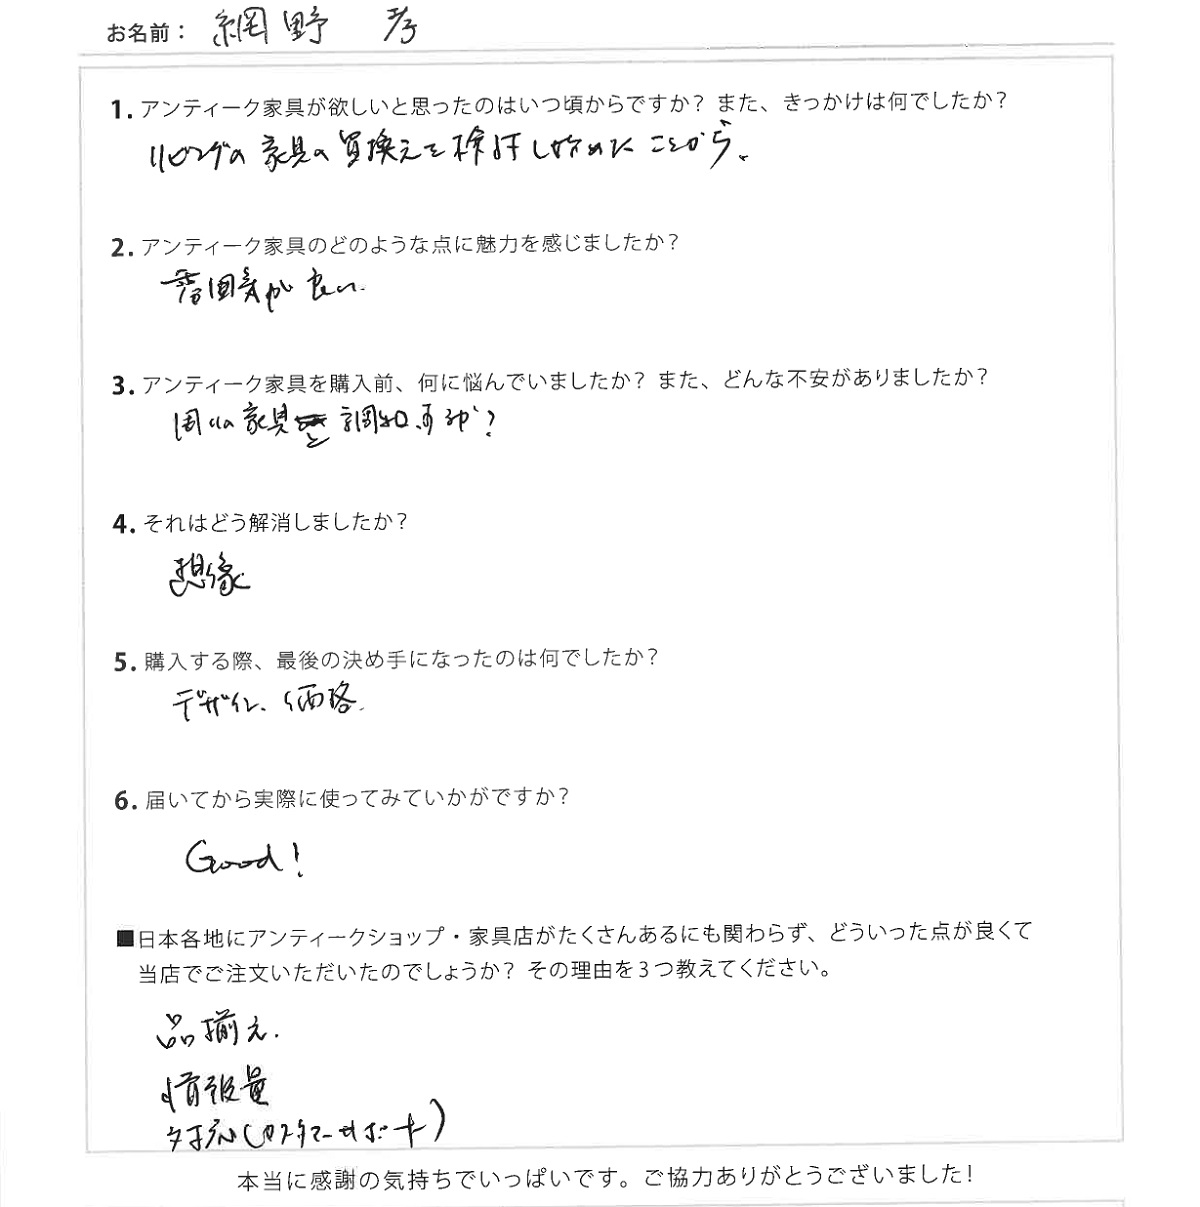 お名前： 網野 孝
1. アンティーク家具が欲しいと思ったのはいつ頃からですか？ また、きっかけは何でしたか？
リビングの家具の買換えを検討し始めたことから。
2. アンティーク家具のどのような点に魅力を感じましたか？
雰囲気が良い.
3. アンティーク家具を購入前、何に悩んでいましたか？ また、どんな不安がありましたか？
周りの家具と調和するか？
4. それはどう解消しましたか？
想像
5. 購入する際、最後の決め手になったのは何でしたか？
デザイン、価格.
6. 届いてから実際に使ってみていかがですか？
Good!
■日本各地にアンティークショップ・家具店がたくさんあるにも関わらず、どういった点が良くて
当店でご注文いただいたのでしょうか？ その理由を3つ教えてください。
品揃え.
情報量
対応(カスタマーサポート)
本当に感謝の気持ちでいっぱいです。ご協力ありがとうございました！